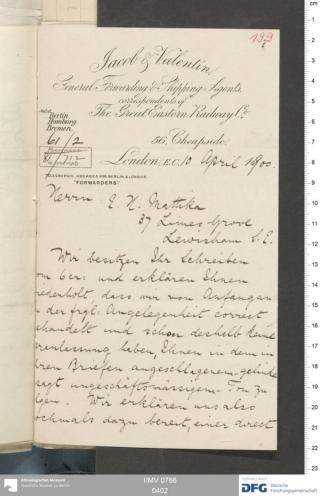 199
Jacob & Valentin
General Forwarding & Shipping Agents,
correspondents of
The Great Eastern Railway Co.
Berlin,
Hamburg,
Bremen.
56, Cheapside,
61/2
London, E.C. 10 April 1900.
TELEGRAPHIC ADDRESS FOR BERLIN & LONDON
"FORWARDERS"
Herrn E. H.
37 Limes Grove
Lewisham S.E.
Wir besitzen Ihr Schreiben
vom 6er: und erklären Ihnen
wiederholt, dass wir von Anfang an
in der frgl. Angelegenheit correct
gehandelt und schon deshalb keine
haben, Ihnen in dem in
Ihren Briefen angeschlagenem gelinde
gesagt ungeschäftsmässigem Ton zu
Wir erklären uns also
nochmals dazu bereit, einer direct
Ethnologisches Museum
Staatliche Museen zu Berlin
I/MV 0766
0402
gefördert durch
DFG
Deutsche
Forschungsgemeinschaft